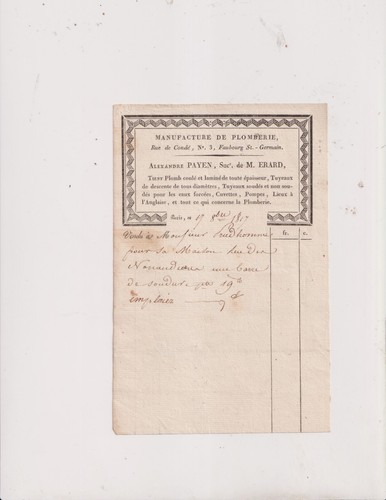 MANUFACTURE DE PLOMBERIE,
Rue de Condé, N°. 3, Faubourg St.-Germain.
ALEXANDRE PAYEN, Sucr. de M. ERARD,
TIENT Plomb coulé et laminé de toute épaisseur, Tuyaux
de descente de tous diamètres, Tuyaux soudés et non sou-
dés pour les eaux forcées, Cuvettes, Pompes, Lieux à
l'Anglaise, et tout ce qui concerne la Plomberie.
Paris, ce 17 8bre 1817
Vendu à Monsieur Prudhomme f. c.
pour sa Maison rue des
une barre
de soudure